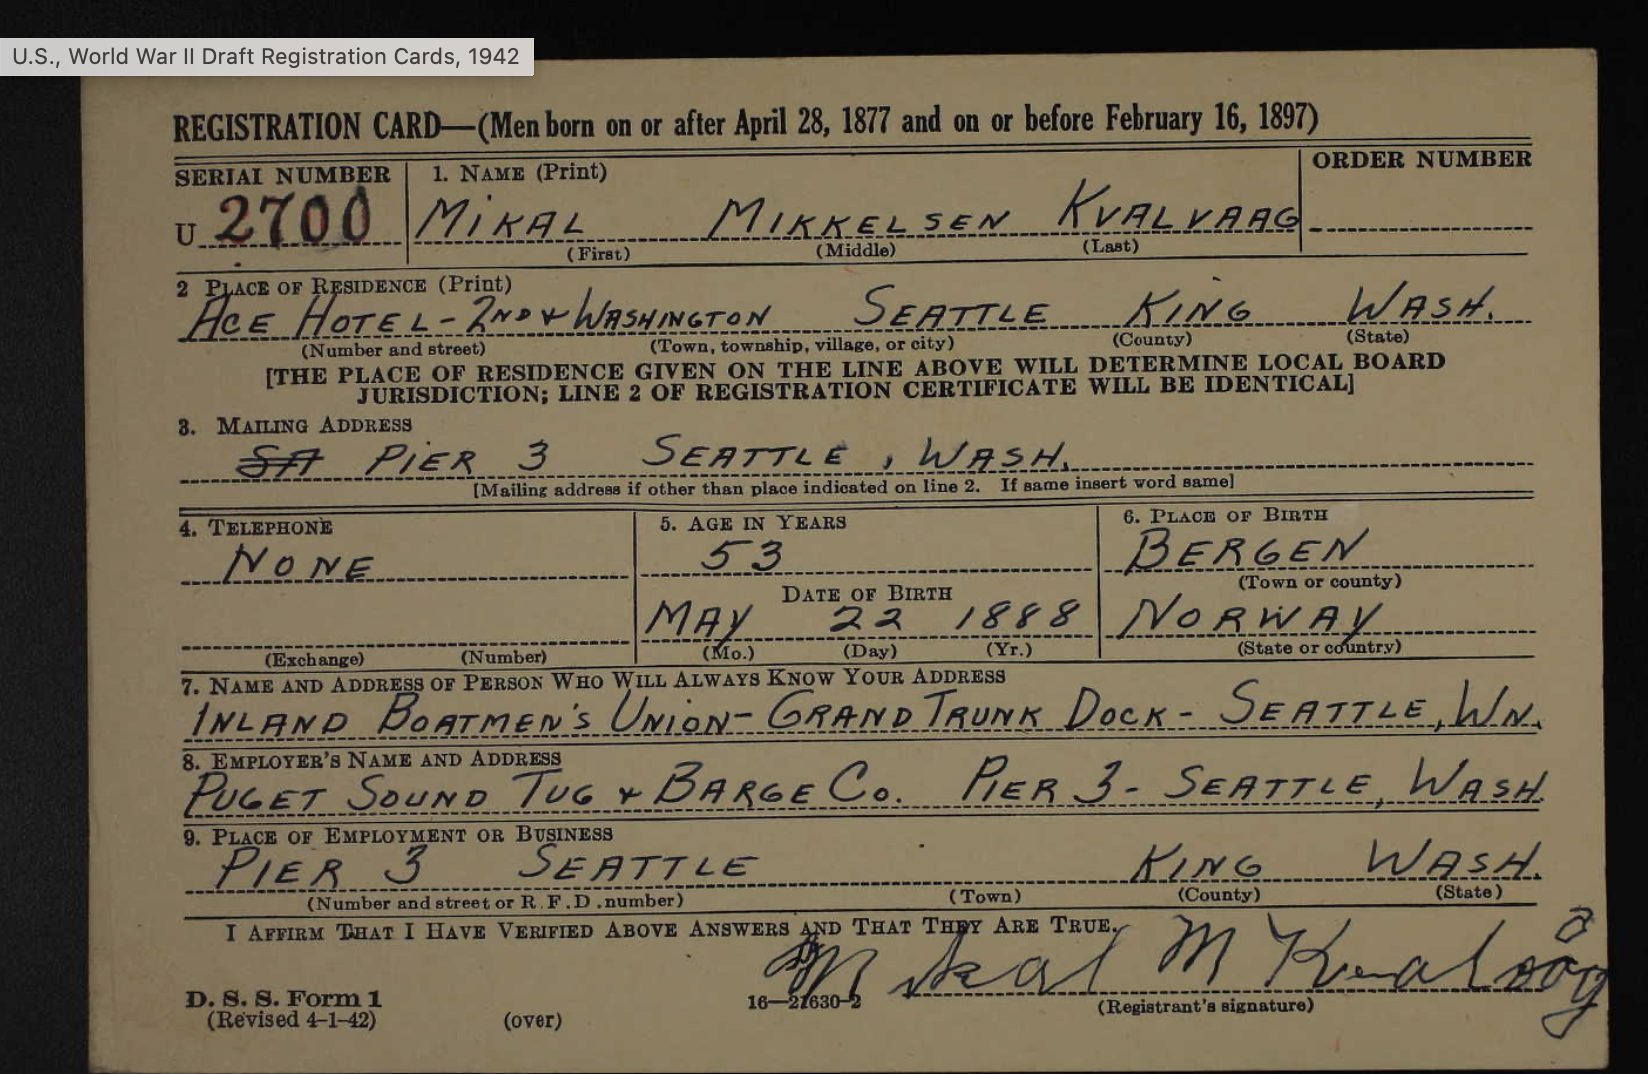 U.S., World War II Draft Registration Cards, 1942
REGISTRATION CARD—(Men born on or after April 28, 1877 and on or before February 16, 1897)
SERIAL NUMBER 1. NAME (Print) ORDER NUMBER
U 2700 MIKAL MIKKELSEN KVALVAAG
(First) (Middle) (Last)
2 PLACE OF RESIDENCE (Print)
ACE HOTEL - 2ND & WASHINGTON SEATTLE KING WASH.
(Number and street) (Town, township, village, or city) (County) (State)
[THE PLACE OF RESIDENCE GIVEN ON THE LINE ABOVE WILL DETERMINE LOCAL BOARD
JURISDICTION; LINE 2 OF REGISTRATION CERTIFICATE WILL BE IDENTICAL]
3. MAILING ADDRESS
SA PIER 3 SEATTLE, WASH.
[Mailing address if other than place indicated on line 2. If same insert word same]
4. TELEPHONE 5. AGE IN YEARS 6. PLACE OF BIRTH
NONE 53 BERGEN
(Town or county)
DATE OF BIRTH
MAY 22 1888 NORWAY
(Exchange) (Number) (Mo.) (Day) (Yr.) (State or country)
7. NAME AND ADDRESS OF PERSON WHO WILL ALWAYS KNOW YOUR ADDRESS
INLAND BOATMEN'S UNION - GRAND TRUNK DOCK - SEATTLE, WN.
8. EMPLOYER'S NAME AND ADDRESS
PUGET SOUND TUG & BARGE CO. PIER 3 - SEATTLE, WASH.
9. PLACE OF EMPLOYMENT OR BUSINESS
PIER 3 SEATTLE KING WASH.
(Number and street or R. F. D. number) (Town) (County) (State)
I AFFIRM THAT I HAVE VERIFIED ABOVE ANSWERS AND THAT THEY ARE TRUE.
Mikal M Kvalvåg
D. S. S. Form 1 16—21630-2 (Registrant's signature)
(Revised 4-1-42) (over)